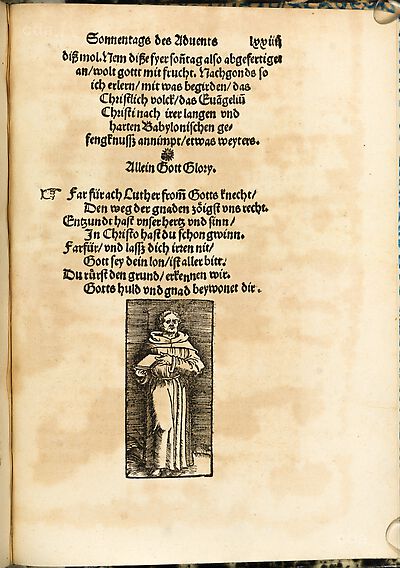 Sonnentags des Aduents lxxiiij
diß mol. Nem diße fyer sontag also abgefertiget
an/ wolt gottt mit frucht. Nachgonds so
ich erlern/ mit was begirden/ das
Christlich volck/ das Euãgeliũ
Christi nach irer langen vnd
harten Babylonischen ge-
fengknusß annimpt/ etwas weyters.
Allein Gott Glory.
Far für ach Luther from̃ Gotts knecht/
Den weg der gnaden zöigst vns recht.
Entzundt hast vnser hertz vnd sinn/
In Christo hast du schon gwinn.
Farfür/ vnd lasß dich irren nit/
Gott sey dein lon/ ist aller bitt.
Du rürst den grund/ erkennen wir.
Gotts huld vnd gnad beywonet dir.